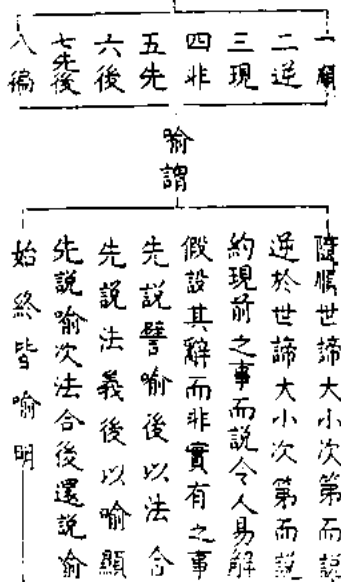 一順
二逆
三現
四非
五先
六後
七先後
八徧
喻謂
隨順世諦大小次第而說
逆於世諦大小次第而說
約現前之事而說令人易解
假設其辭而非實有之事
先說譬喻後以法合
先說法義後以喻顯
先說喻次法合後還說喻
始終皆喻明